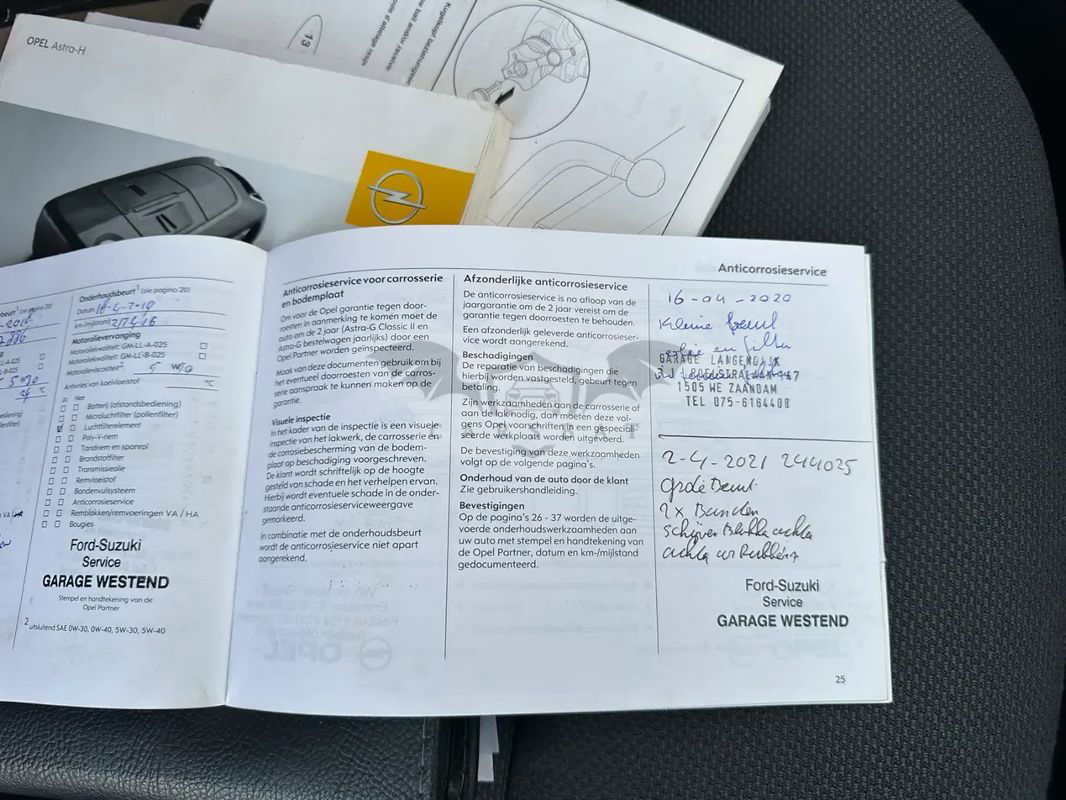 OPEL Astra-H
13
Onderhoudsbeurt 1 (zie pagina 20)
Datum
km-/mijlstand 217416
Motorolievervanging
Motoroliekwaliteit: GM-LL-A-025
Motoroliekwaliteit: GM-LL-B-025
Motorolieviscositeit 2 5 W30
Antivries van koelvloeistof °C
Ja Nee
Batterij (afstandsbediening)
Microluchtfilter (pollenfilter)
Luchtfilterelement
Poly-V-riem
Tandriem en spanrol
Brandstoffilter
Transmissieolie
Remvloeistof
Bandenvulsysteem
Anticorrosieservice
Remblokken/remvoeringen VA / HA
Bougies
Ford-Suzuki
Service
GARAGE WESTEND
Stempel en handtekening van de
Opel Partner
2 uitsluitend SAE 0W-30, 0W-40, 5W-30, 5W-40
Anticorrosieservice voor carrosserie
en bodemplaat
Om voor de Opel garantie tegen door-
roesten in aanmerking te komen moet de
auto om de 2 jaar (Astra-G Classic II en
Astra-G bestelwagen jaarlijks) door een
Opel Partner worden geïnspecteerd.
Maak van deze documenten gebruik om bij
het eventueel doorroesten van de carros-
serie aanspraak te kunnen maken op de
garantie.
Visuele inspectie
In het kader van de inspectie is een visuele
inspectie van het lakwerk, de carrosserie en
de corrosiebescherming van de bodem-
plaat op beschadiging voorgeschreven.
De klant wordt schriftelijk op de hoogte
gesteld van schade en het verhelpen ervan.
Hierbij wordt eventuele schade in de onder-
staande anticorrosieserviceweergave
gemarkeerd.
In combinatie met de onderhoudsbeurt
wordt de anticorrosieservice niet apart
aangerekend.
Afzonderlijke anticorrosieservice
De anticorrosieservice is na afloop van de
jaargarantie om de 2 jaar vereist om de
garantie tegen doorroesten te behouden.
Een afzonderlijke geleverde anticorrosieser-
vice wordt aangerekend.
Beschadigingen
De reparatie van beschadigingen die
hierbij worden vastgesteld, gebeurt tegen
betaling.
Zijn werkzaamheden aan de carrosserie of
aan de lak nodig, dan moeten deze vol-
gens Opel voorschriften in een gespeciali-
seerde werkplaats worden uitgevoerd.
De bevestiging van deze werkzaamheden
volgt op de volgende pagina's.
Onderhoud van de auto door de klant
Zie gebruikershandleiding.
Bevestigingen
Op de pagina's 26 - 37 worden de uitge-
voerde onderhoudswerkzaamheden aan
uw auto met stempel en handtekening van
de Opel Partner, datum en km-/mijlstand
gedocumenteerd.
Anticorrosieservice
16-04-2020
Kleine beurt
olie en filter
GARAGE LANGENDIJK
1505 WE ZAANDAM
TEL 075-6164408
2-4-2021 244025
Grote Beurt
2x Banden
schijven Blokken achter
Ford-Suzuki
Service
GARAGE WESTEND
25